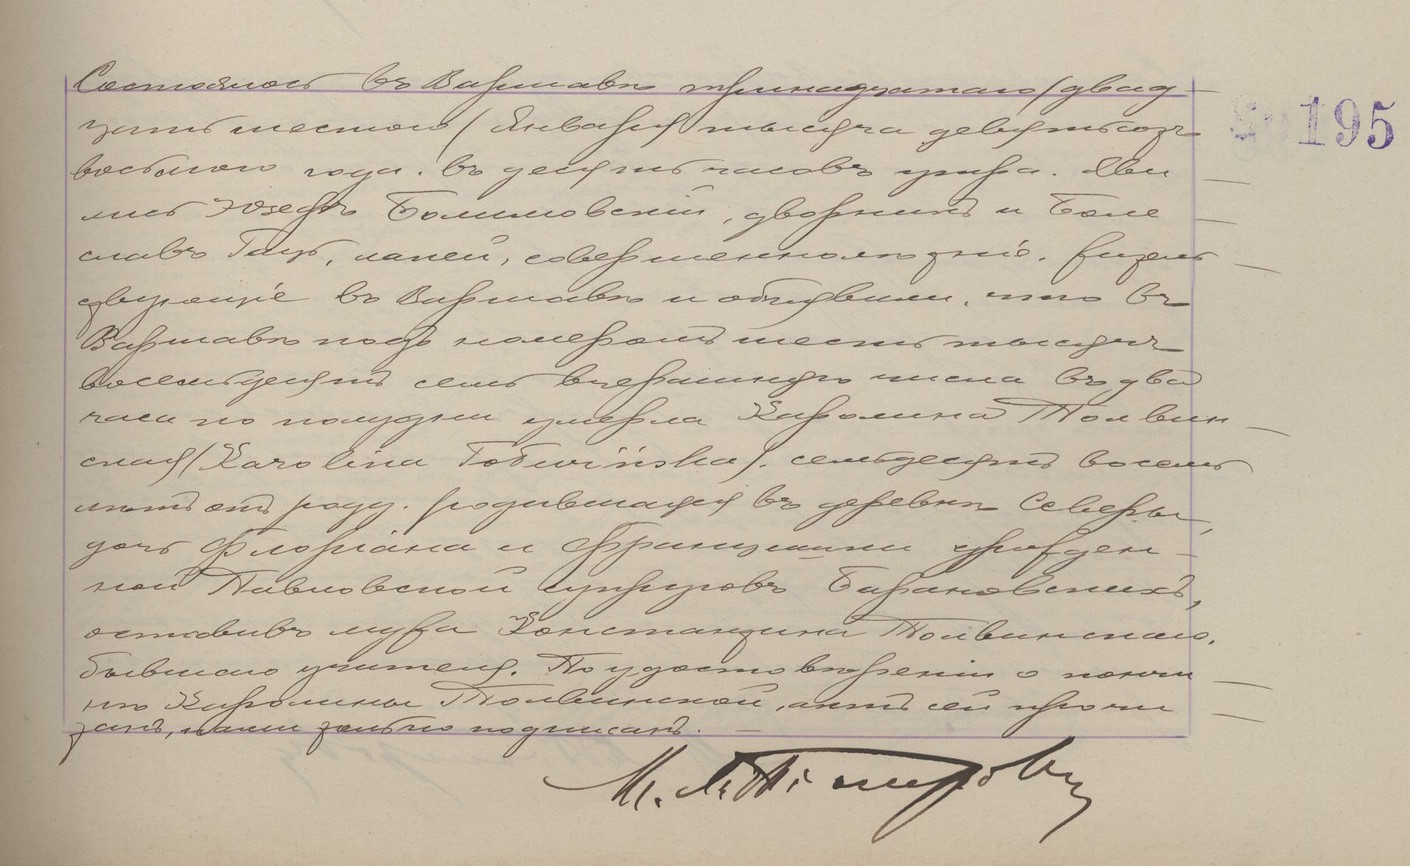 Состоялось въ Варшавѣ тринадцатаго /двад
цать шестого/ Января тысяча девятьсотъ
восьмого года. въ десять часовъ утра. Яви
лись Юзефъ Болимовскій, дворникъ и Боле
славъ лакей, совершеннолѣтніе. житель
ствующіе въ Варшавѣ и объявили, что въ
Варшавѣ подъ номеромъ шесть тысячъ
восемьдесятъ семь вчерашняго числа въ два
часа по полудни умерла Каролина Толвин
ская /Karolina Tołwińska/. семьдесятъ восемь
лѣтъ отъ роду. родившаяся въ деревнѣ Северы,
дочь Флоріана и Францишки урожден-
ной Павловской супруговъ Барановскихъ,
оставивъ мужа Константина Толвинскаго,
бывшаго учителя. По удостовѣреніи о кончи
нѣ Каролины Толвинской, актъ сей прочи
танъ, нами только подписанъ. —
195